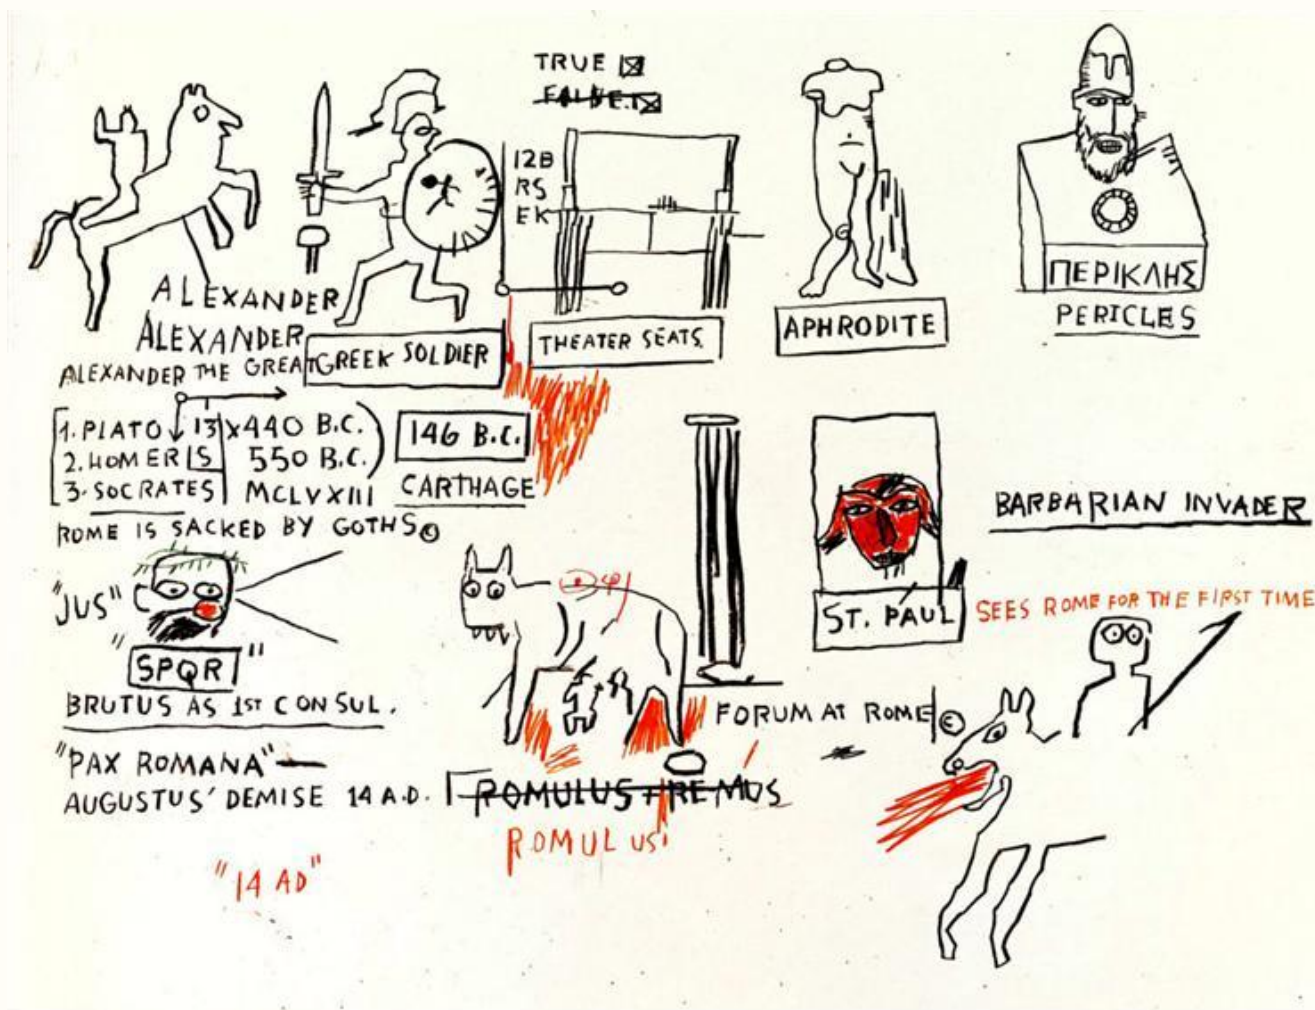 TRUE
FALSE.
12B
RS
EK
ALEXANDER
ALEXANDER
ALEXANDER THE GREAT
GREEK SOLDIER
THEATER SEATS.
APHRODITE
ΠΕΡΙΚΛΗΣ
PERICLES
1. PLATO 13 X440 B.C.
2. HOMER IS 550 B.C.
3. SOCRATES MCLVXIII
146 B.C.
CARTHAGE
ROME IS SACKED BY GOTHS©
"JUS"
"SPQR"
BRUTUS AS 1ST CONSUL.
"PAX ROMANA"—
AUGUSTUS' DEMISE 14 A.D.
"14 AD"
ROMULUS + REMUS
ROMULUS
FORUM AT ROME ©
ST. PAUL
BARBARIAN INVADER
SEES ROME FOR THE FIRST TIME